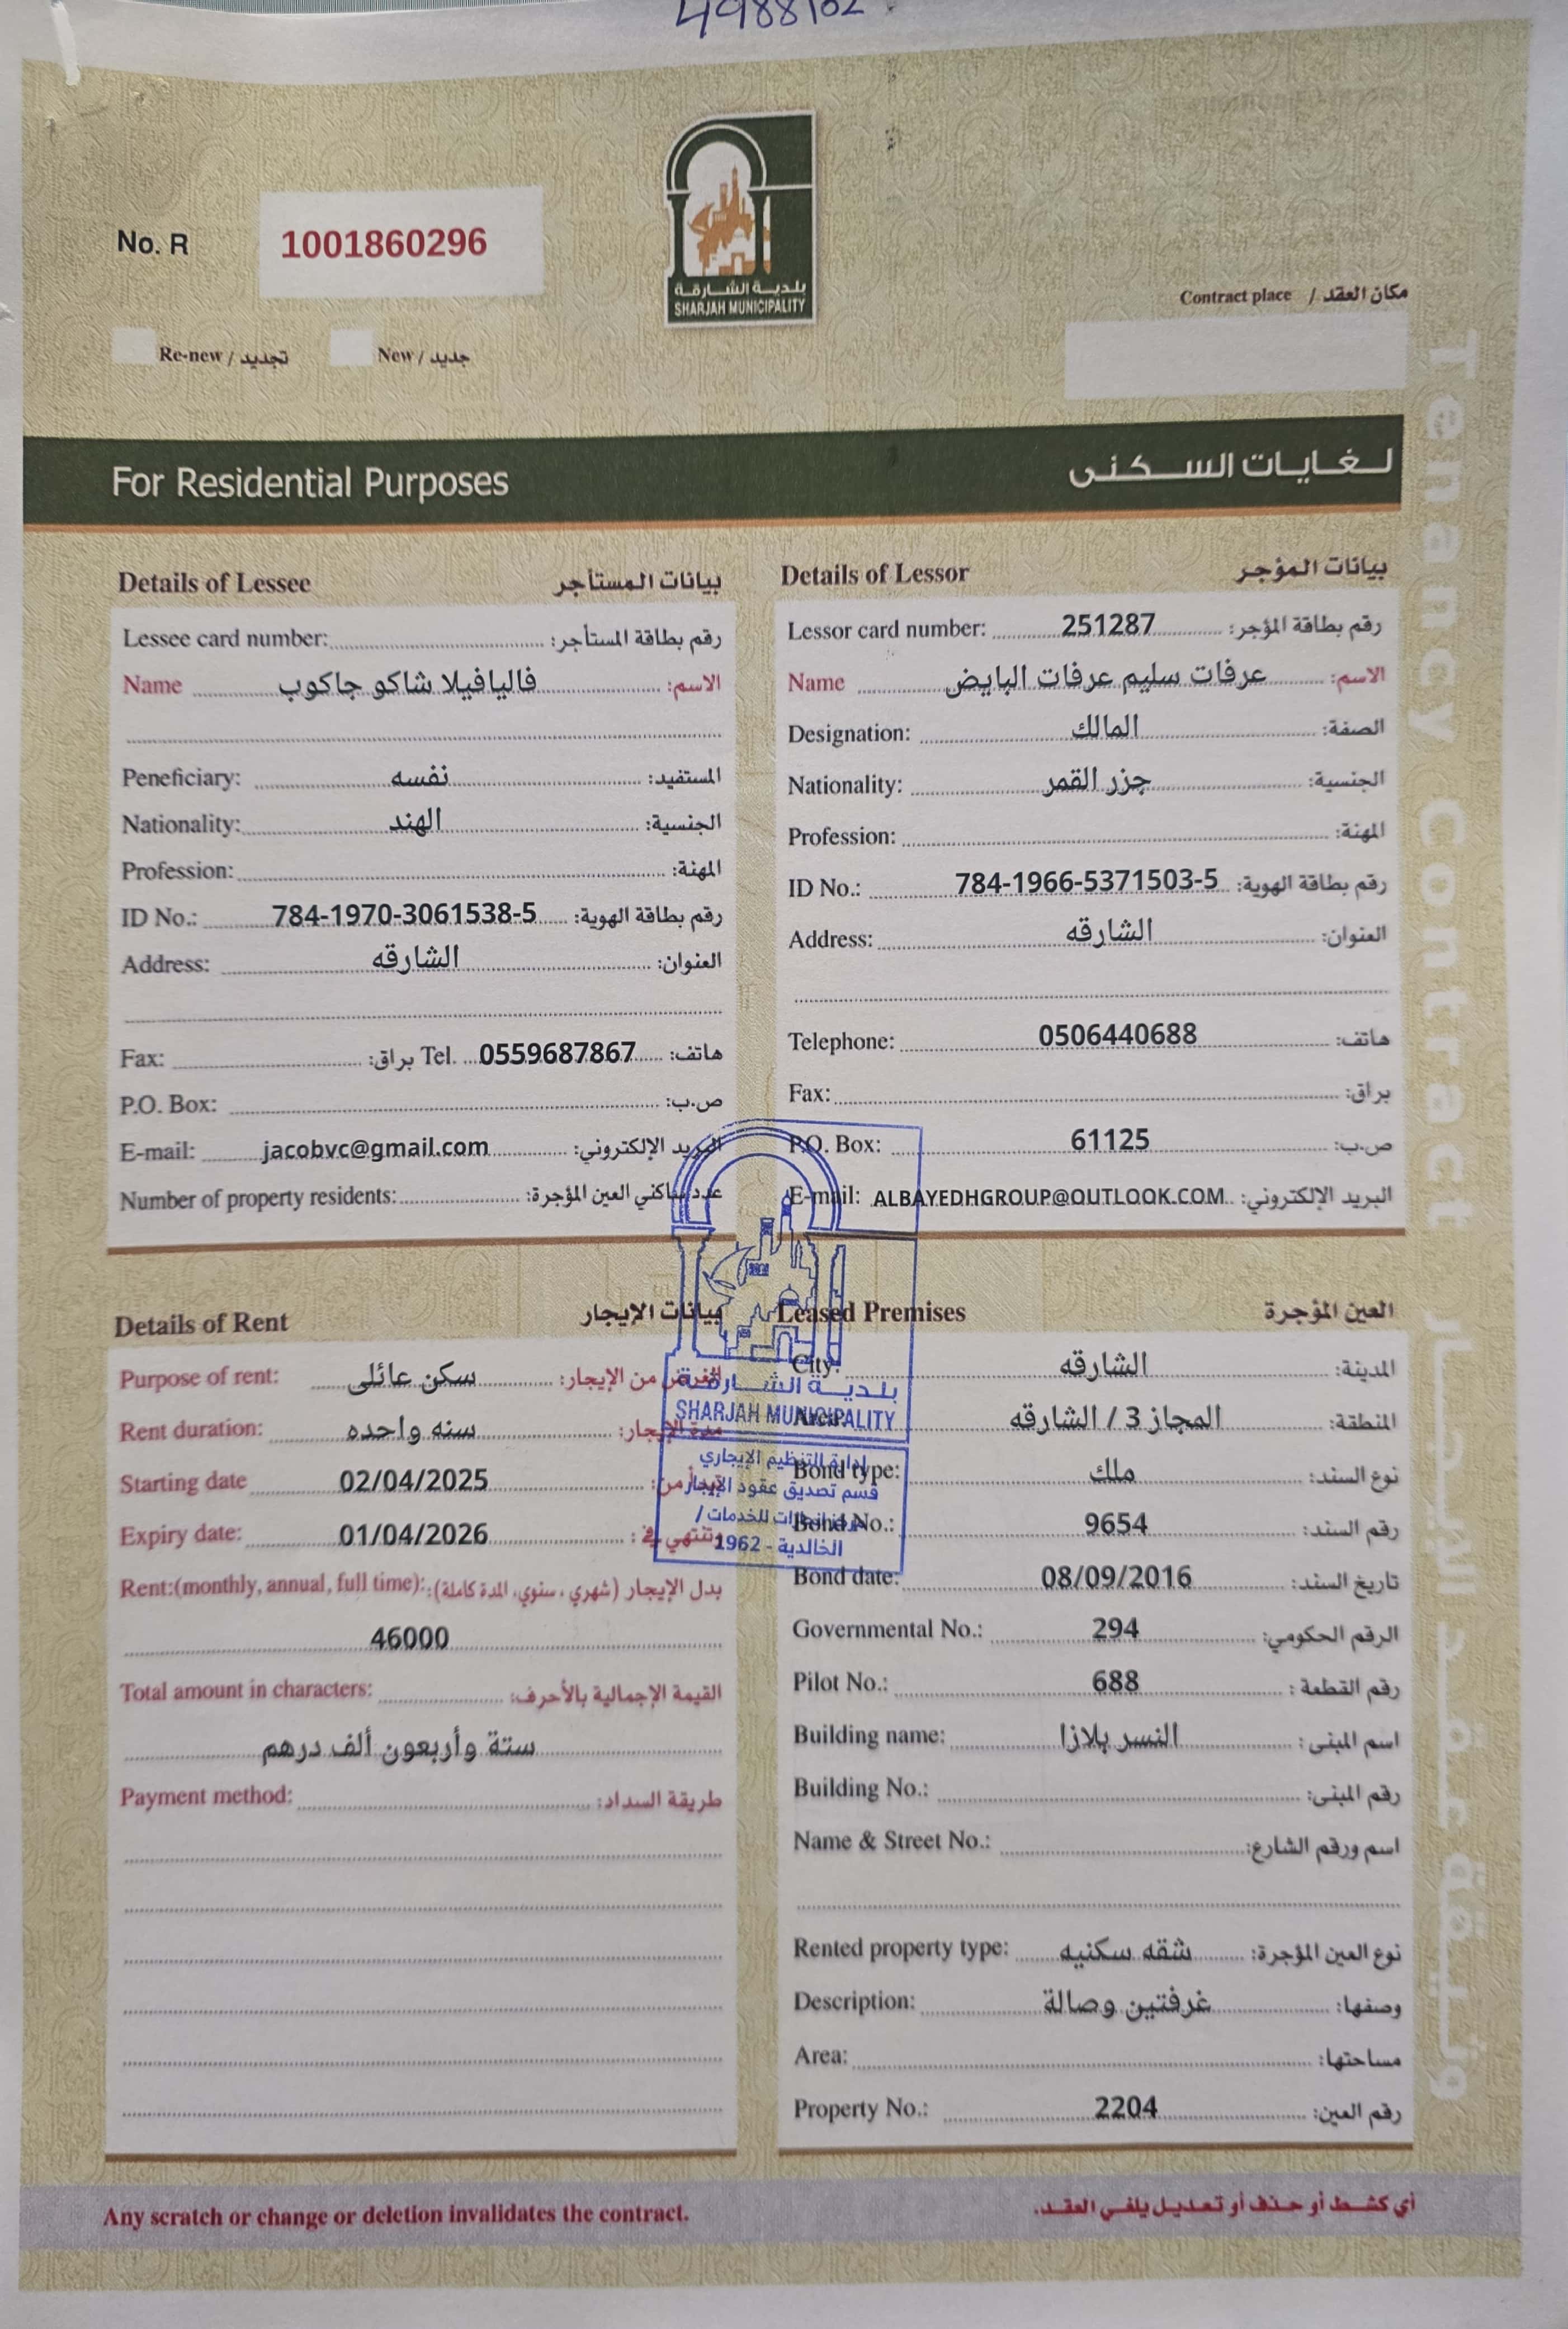 4988102
No. R 1001860296
بلدية الشارقة
SHARJAH MUNICIPALITY
Contract place / مكان العقد
Re-new / تجديد New / جديد
For Residential Purposes لغايات السكنى
Tenancy Contract
Details of Lessee بيانات المستأجر
Lessee card number: رقم بطاقة المستأجر:
Name فاليافيلا شاكو جاكوب الاسم:
Peneficiary: نفسه المستفيد:
Nationality: الهند الجنسية:
Profession: المهنة:
ID No.: 784-1970-3061538-5 رقم بطاقة الهوية:
Address: الشارقه العنوان:
Fax: براق: Tel. 0559687867 هاتف:
P.O. Box: ص.ب:
E-mail: jacobvc@gmail.com البريد الإلكتروني:
Number of property residents: عدد ساكني العين المؤجرة:
Details of Lessor بيانات المؤجر
Lessor card number: 251287 رقم بطاقة المؤجر:
Name عرفات سليم عرفات البايض الاسم:
Designation: المالك الصفة:
Nationality: جزر القمر الجنسية:
Profession: المهنة:
ID No.: 784-1966-5371503-5 رقم بطاقة الهوية:
Address: الشارقه العنوان:
Telephone: 0506440688 هاتف:
Fax: براق:
P.O. Box: 61125 ص.ب:
E-mail: ALBAYEDHGROUP@OUTLOOK.COM البريد الإلكتروني:
Details of Rent بيانات الإيجار
Purpose of rent: سكن عائلى الغرض من الإيجار:
Rent duration: سنه واحده مدة الإيجار:
Starting date 02/04/2025 تبدأ من:
Expiry date: 01/04/2026 وتنتهي في :
Rent:(monthly, annual, full time): بدل الإيجار (شهري، سنوي، المدة كاملة):
46000
Total amount in characters: القيمة الإجمالية بالأحرف:
ستة وأربعون ألف درهم
Payment method: طريقة السداد:
بلدية الشارقة
SHARJAH MUNICIPALITY
إدارة التنظيم الإيجاري
قسم تصديق عقود الإيجار
للخدمات /
الخالدية - 1962
Leased Premises العين المؤجرة
City: الشارقه المدينة:
Area: المجاز 3 / الشارقه المنطقة:
Bond type: ملك نوع السند:
Bond No.: 9654 رقم السند:
Bond date: 08/09/2016 تاريخ السند:
Governmental No.: 294 الرقم الحكومي:
Pilot No.: 688 رقم القطعة :
Building name: النسر بلازا اسم المبنى :
Building No.: رقم المبنى:
Name & Street No.: اسم ورقم الشارع:
Rented property type: شقه سكنيه نوع العين المؤجرة:
Description: غرفتين وصالة وصفها:
Area: مساحتها:
Property No.: 2204 رقم العين:
Any scratch or change or deletion invalidates the contract. أي كشط أو حذف أو تعديل يلغي العقد.